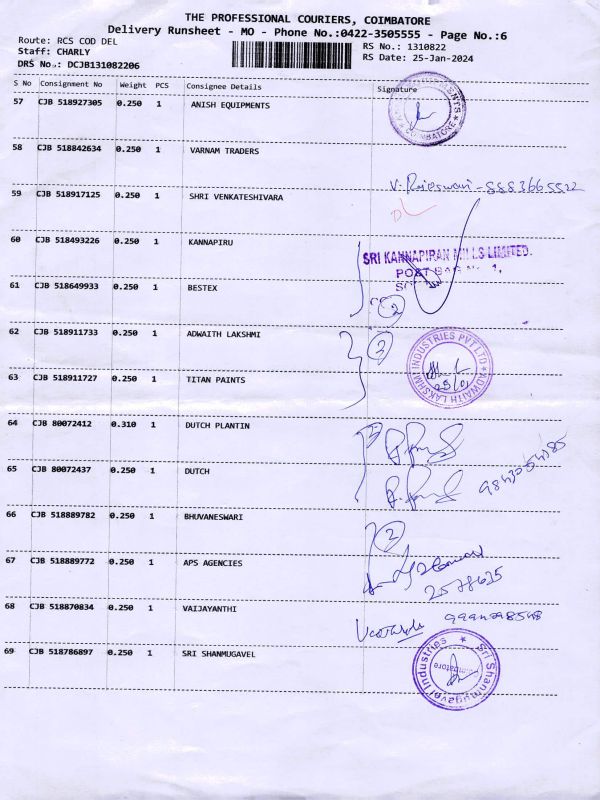 THE PROFESSIONAL COURIERS, COIMBATORE
Delivery Runsheet - MO - Phone No.:0422-3505555 - Page No.:6
Route: RCS COD DEL
RS No.: 1310822
Staff: CHARLY
RS Date: 25-Jan-2024
DRS No.: DCJB131082206
S No Consignment No Weight PCS Consignee Details Signature
57 CJB 518927305 0.250 1 ANISH EQUIPMENTS
COIMBATORE
58 CJB 518842634 0.250 1 VARNAM TRADERS
V. Rajeswari - 8883665522
59 CJB 518917125 0.250 1 SHRI VENKATESHIVARA
60 CJB 518493226 0.250 1 KANNAPIRU
SRI KANNAPIRAN MILLS LIMITED.
POST BAG No. 1,
61 CJB 518649933 0.250 1 BESTEX
2
62 CJB 518911733 0.250 1 ADWAITH LAKSHMI
2
ADWAITH LAKSHMI INDUSTRIES PVT LTD
25/01
63 CJB 518911727 0.250 1 TITAN PAINTS
64 CJB 80072412 0.310 1 DUTCH PLANTIN
65 CJB 80072437 0.250 1 DUTCH
66 CJB 518889782 0.250 1 BHUVANESWARI
2
67 CJB 518889772 0.250 1 APS AGENCIES
2578625
68 CJB 518870834 0.250 1 VAIJAYANTHI
69 CJB 518786897 0.250 1 SRI SHANMUGAVEL
Sri Shanmugavel Industries
Coimbatore